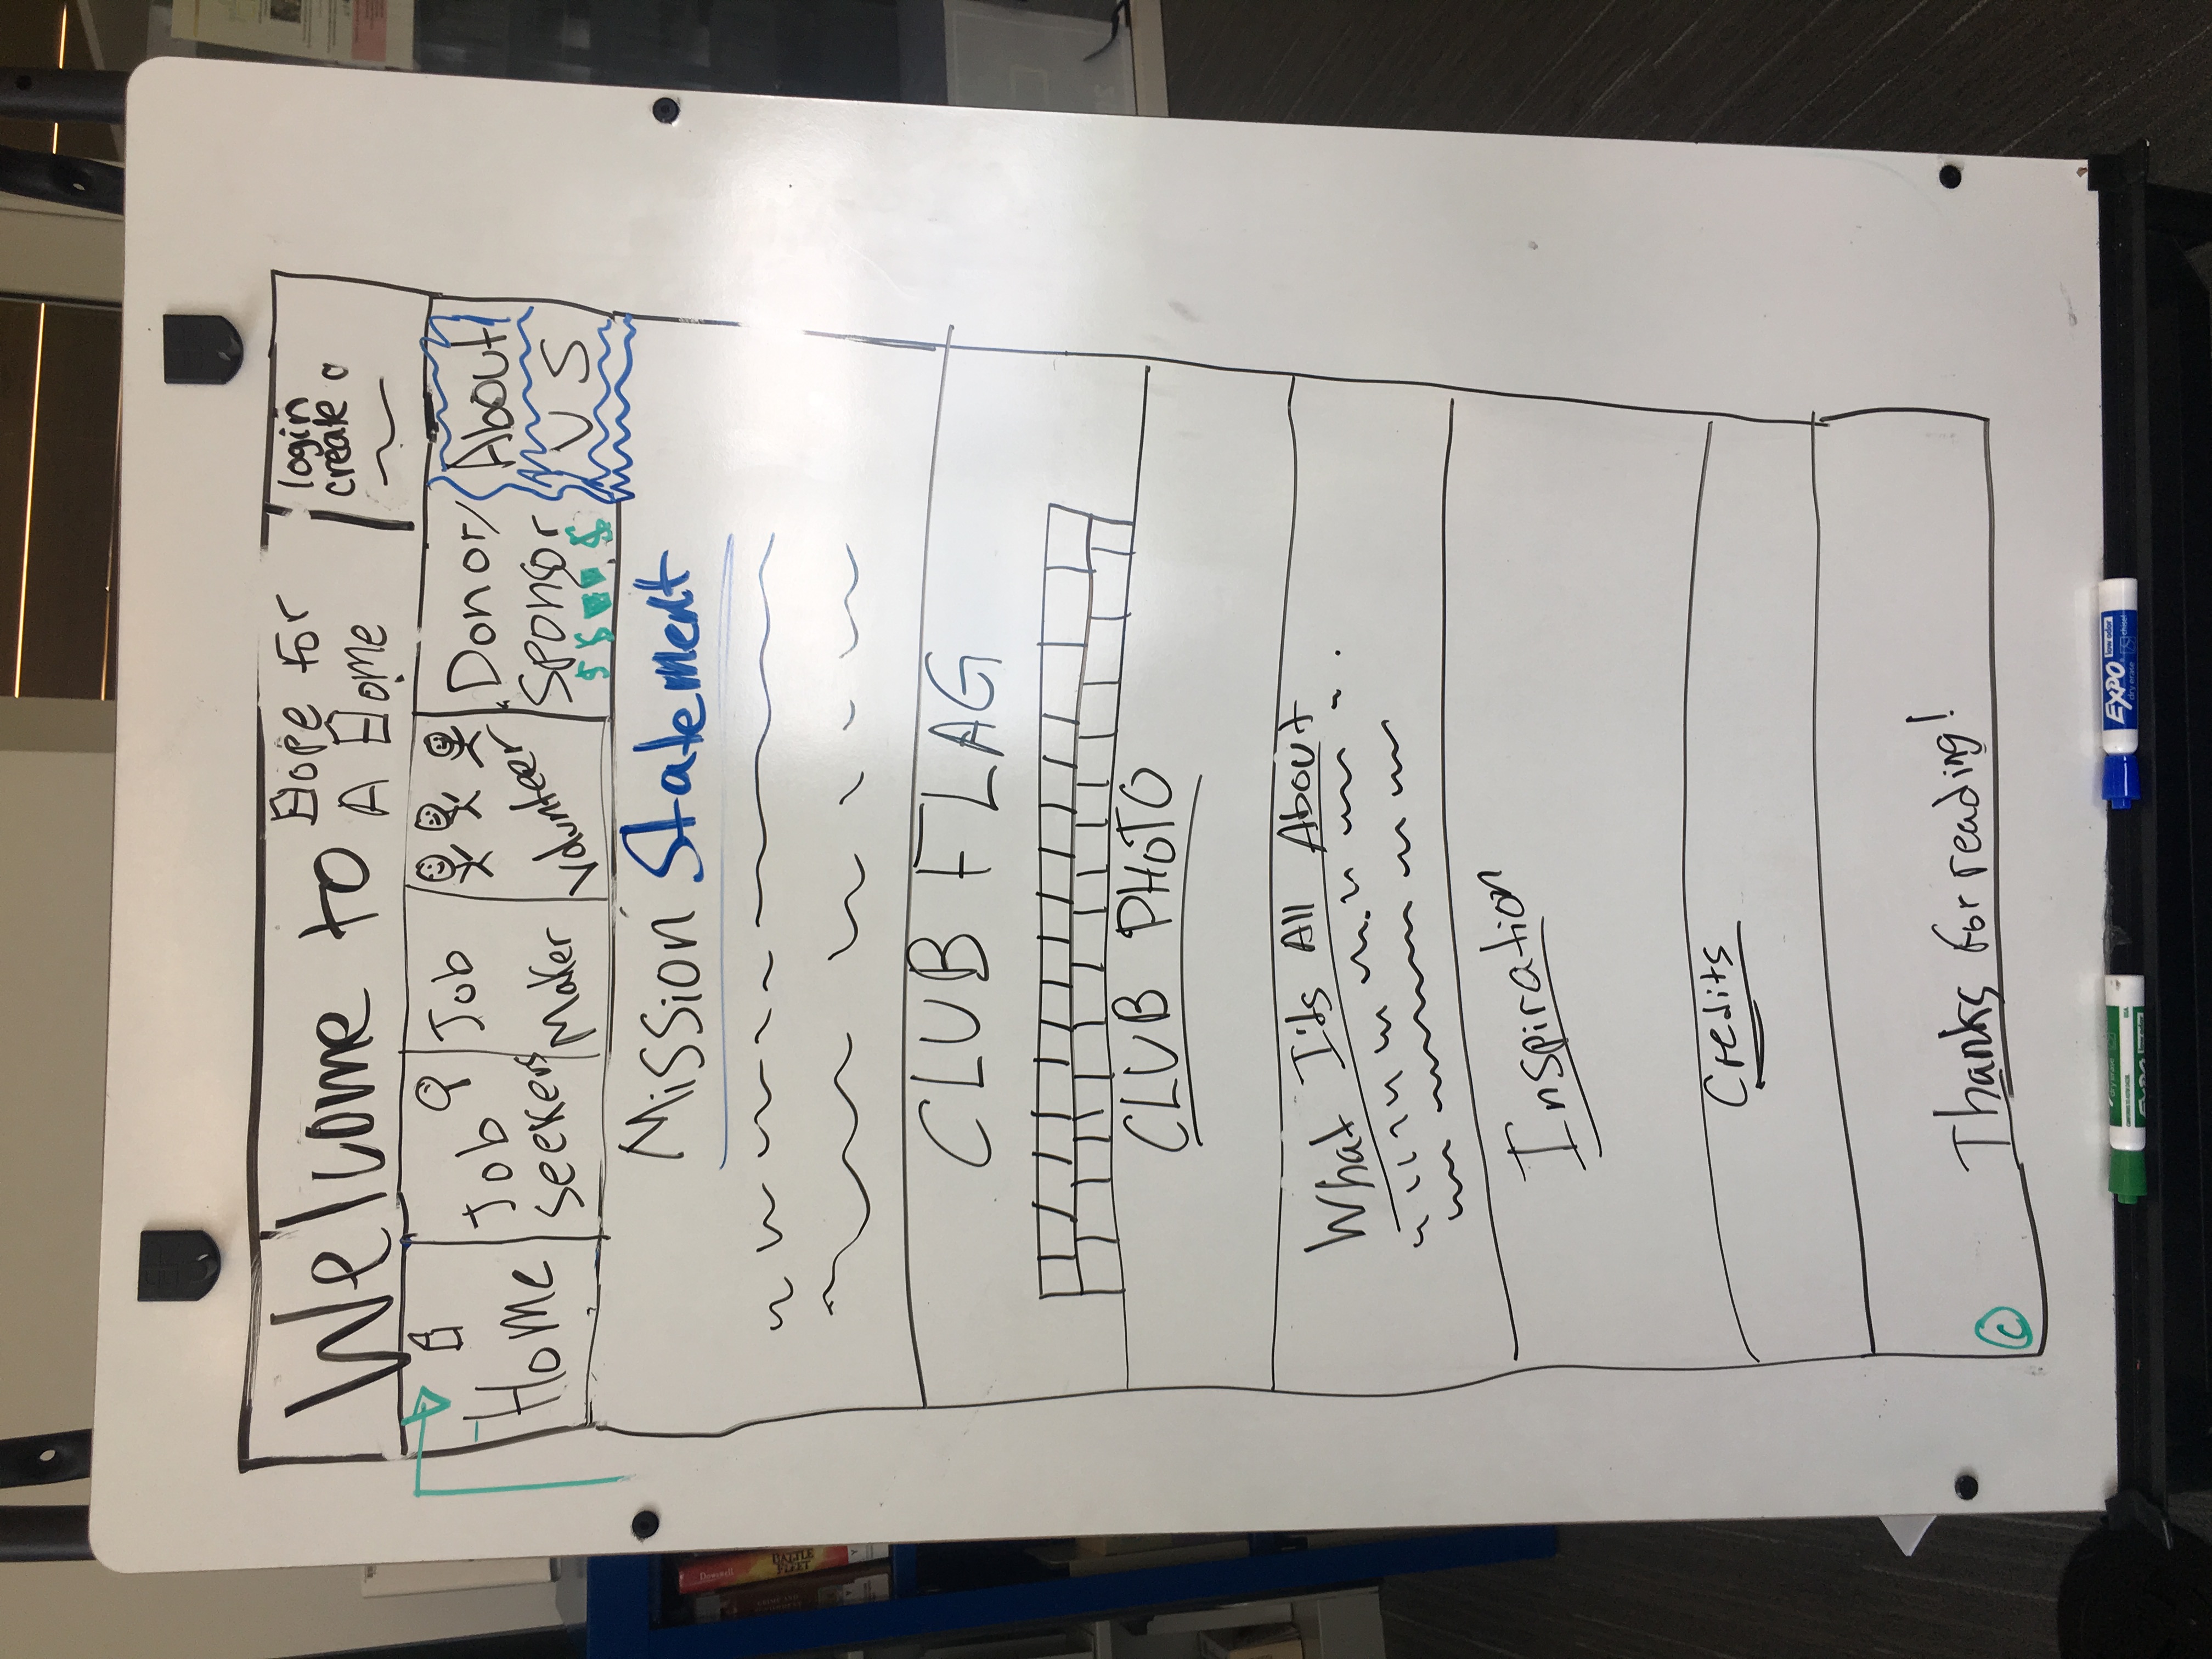 Welcome to Hope For
A Home
login
create a
Home
Job
Seekers
Job
Maker
Volunteer
Donor/
Sponsor
$ $ $
About
US
Mission Statement
CLUB FLAG
CLUB PHOTO
What It's All About
Inspiration
Credits
Thanks for reading!
©
EXPO
low odor
dry erase
chisel
dry erase
USA
EXPO
low odor